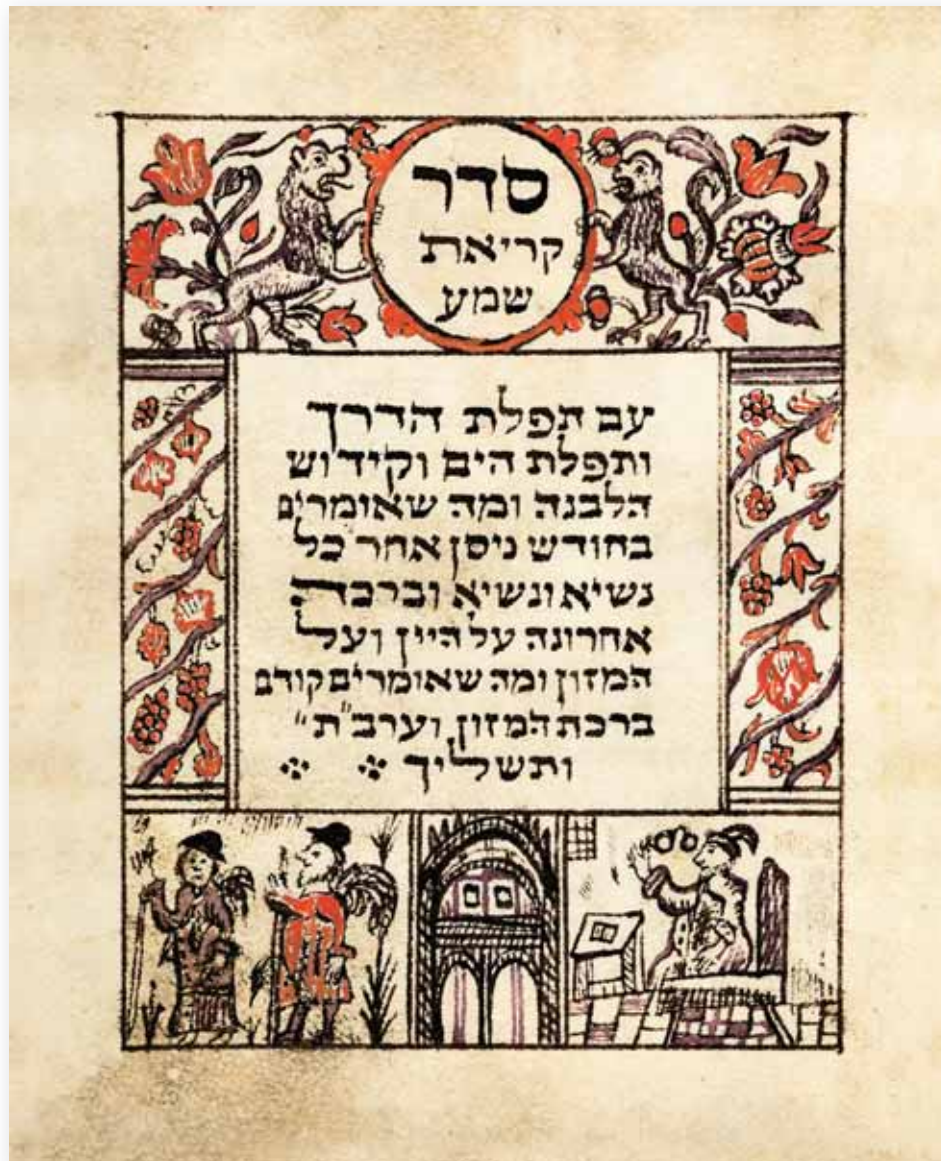 סדר
קריאת
שמע
עם תפלת הדרך
ותפלת הים וקידוש
הלבנה ומה שאומרים
בחודש ניסן אחר כל
נשיא ונשיא וברכה
אחרונה על היין ועל
המזון ומה שאומרים קודם
ברכת המזון וערב״ת״
ותשליך